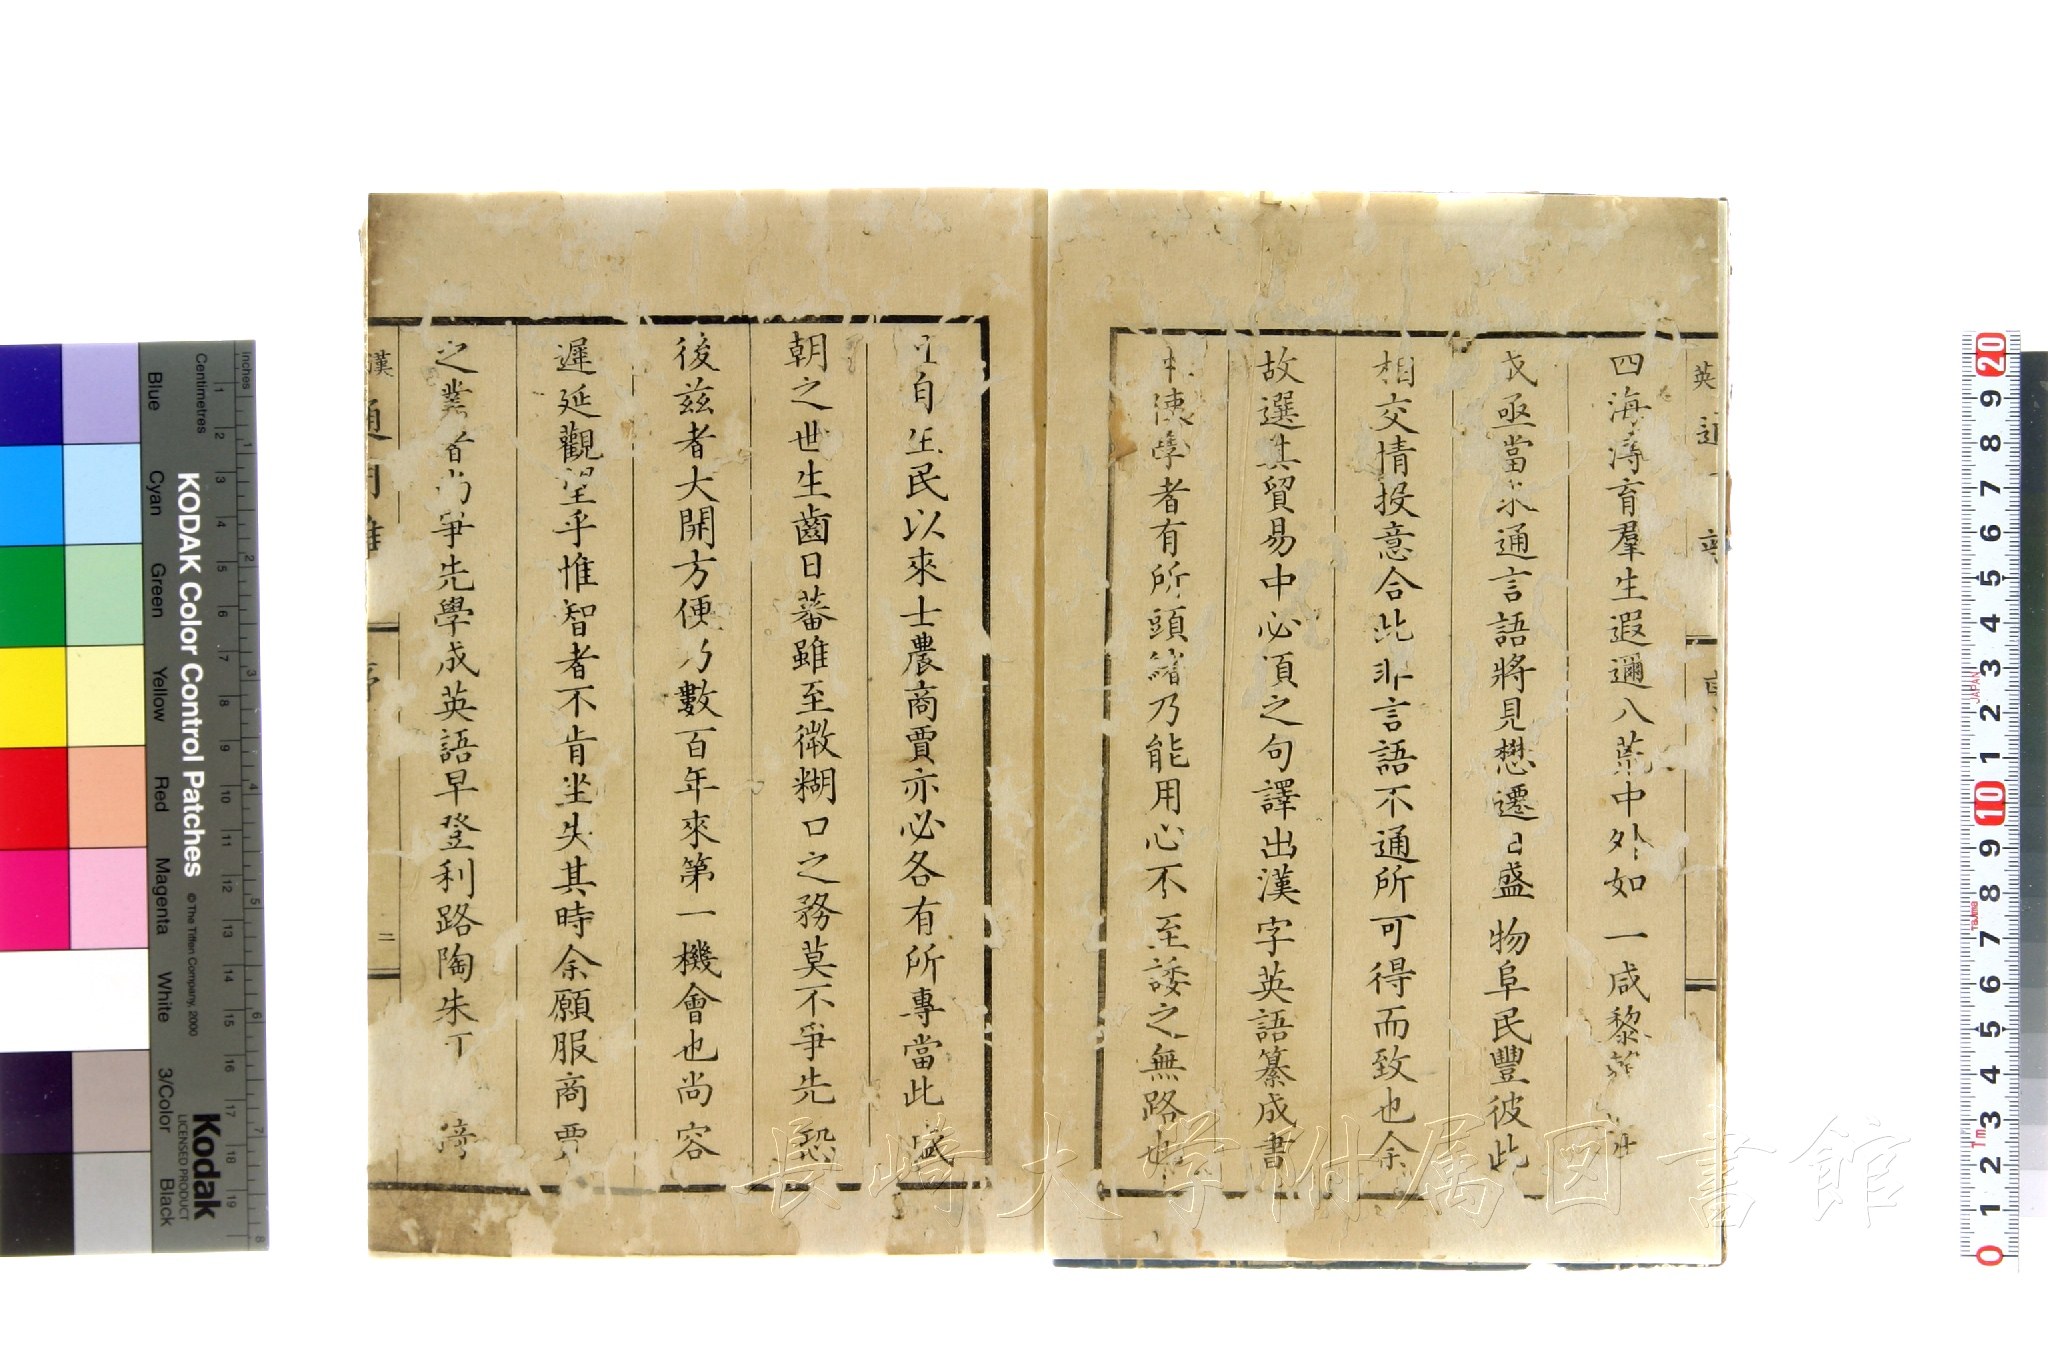 四海涛育羣生遐邇八荒中外如一咸黎
亟當求通言語將見懋遷日盛物阜民豐彼此
相交情投意合此非言語不通所可得而致也余
故選其貿易中必須之句譯出漢字英語纂成書
陳學者有所頭緒乃能用心不至諉之無路也
自生民以來士農商賈亦必各有所專當此盛
朝之世生齒日蕃雖至微糊口之務莫不爭先恐
後兹者大開方便乃數百年來第一機會也尚容
遲延觀望乎惟智者不肯坐失其時余願服商賈
之業者尚爭先學成英語早登利路陶朱
漢
二
英
長崎大学附属図書館
KODAK Color Control Patches
© The Tiffen Company, 2000
Kodak
LICENSED PRODUCT
Blue Cyan Green Yellow Red Magenta White 3/Color Black
inches
Centimetres
JAPAN